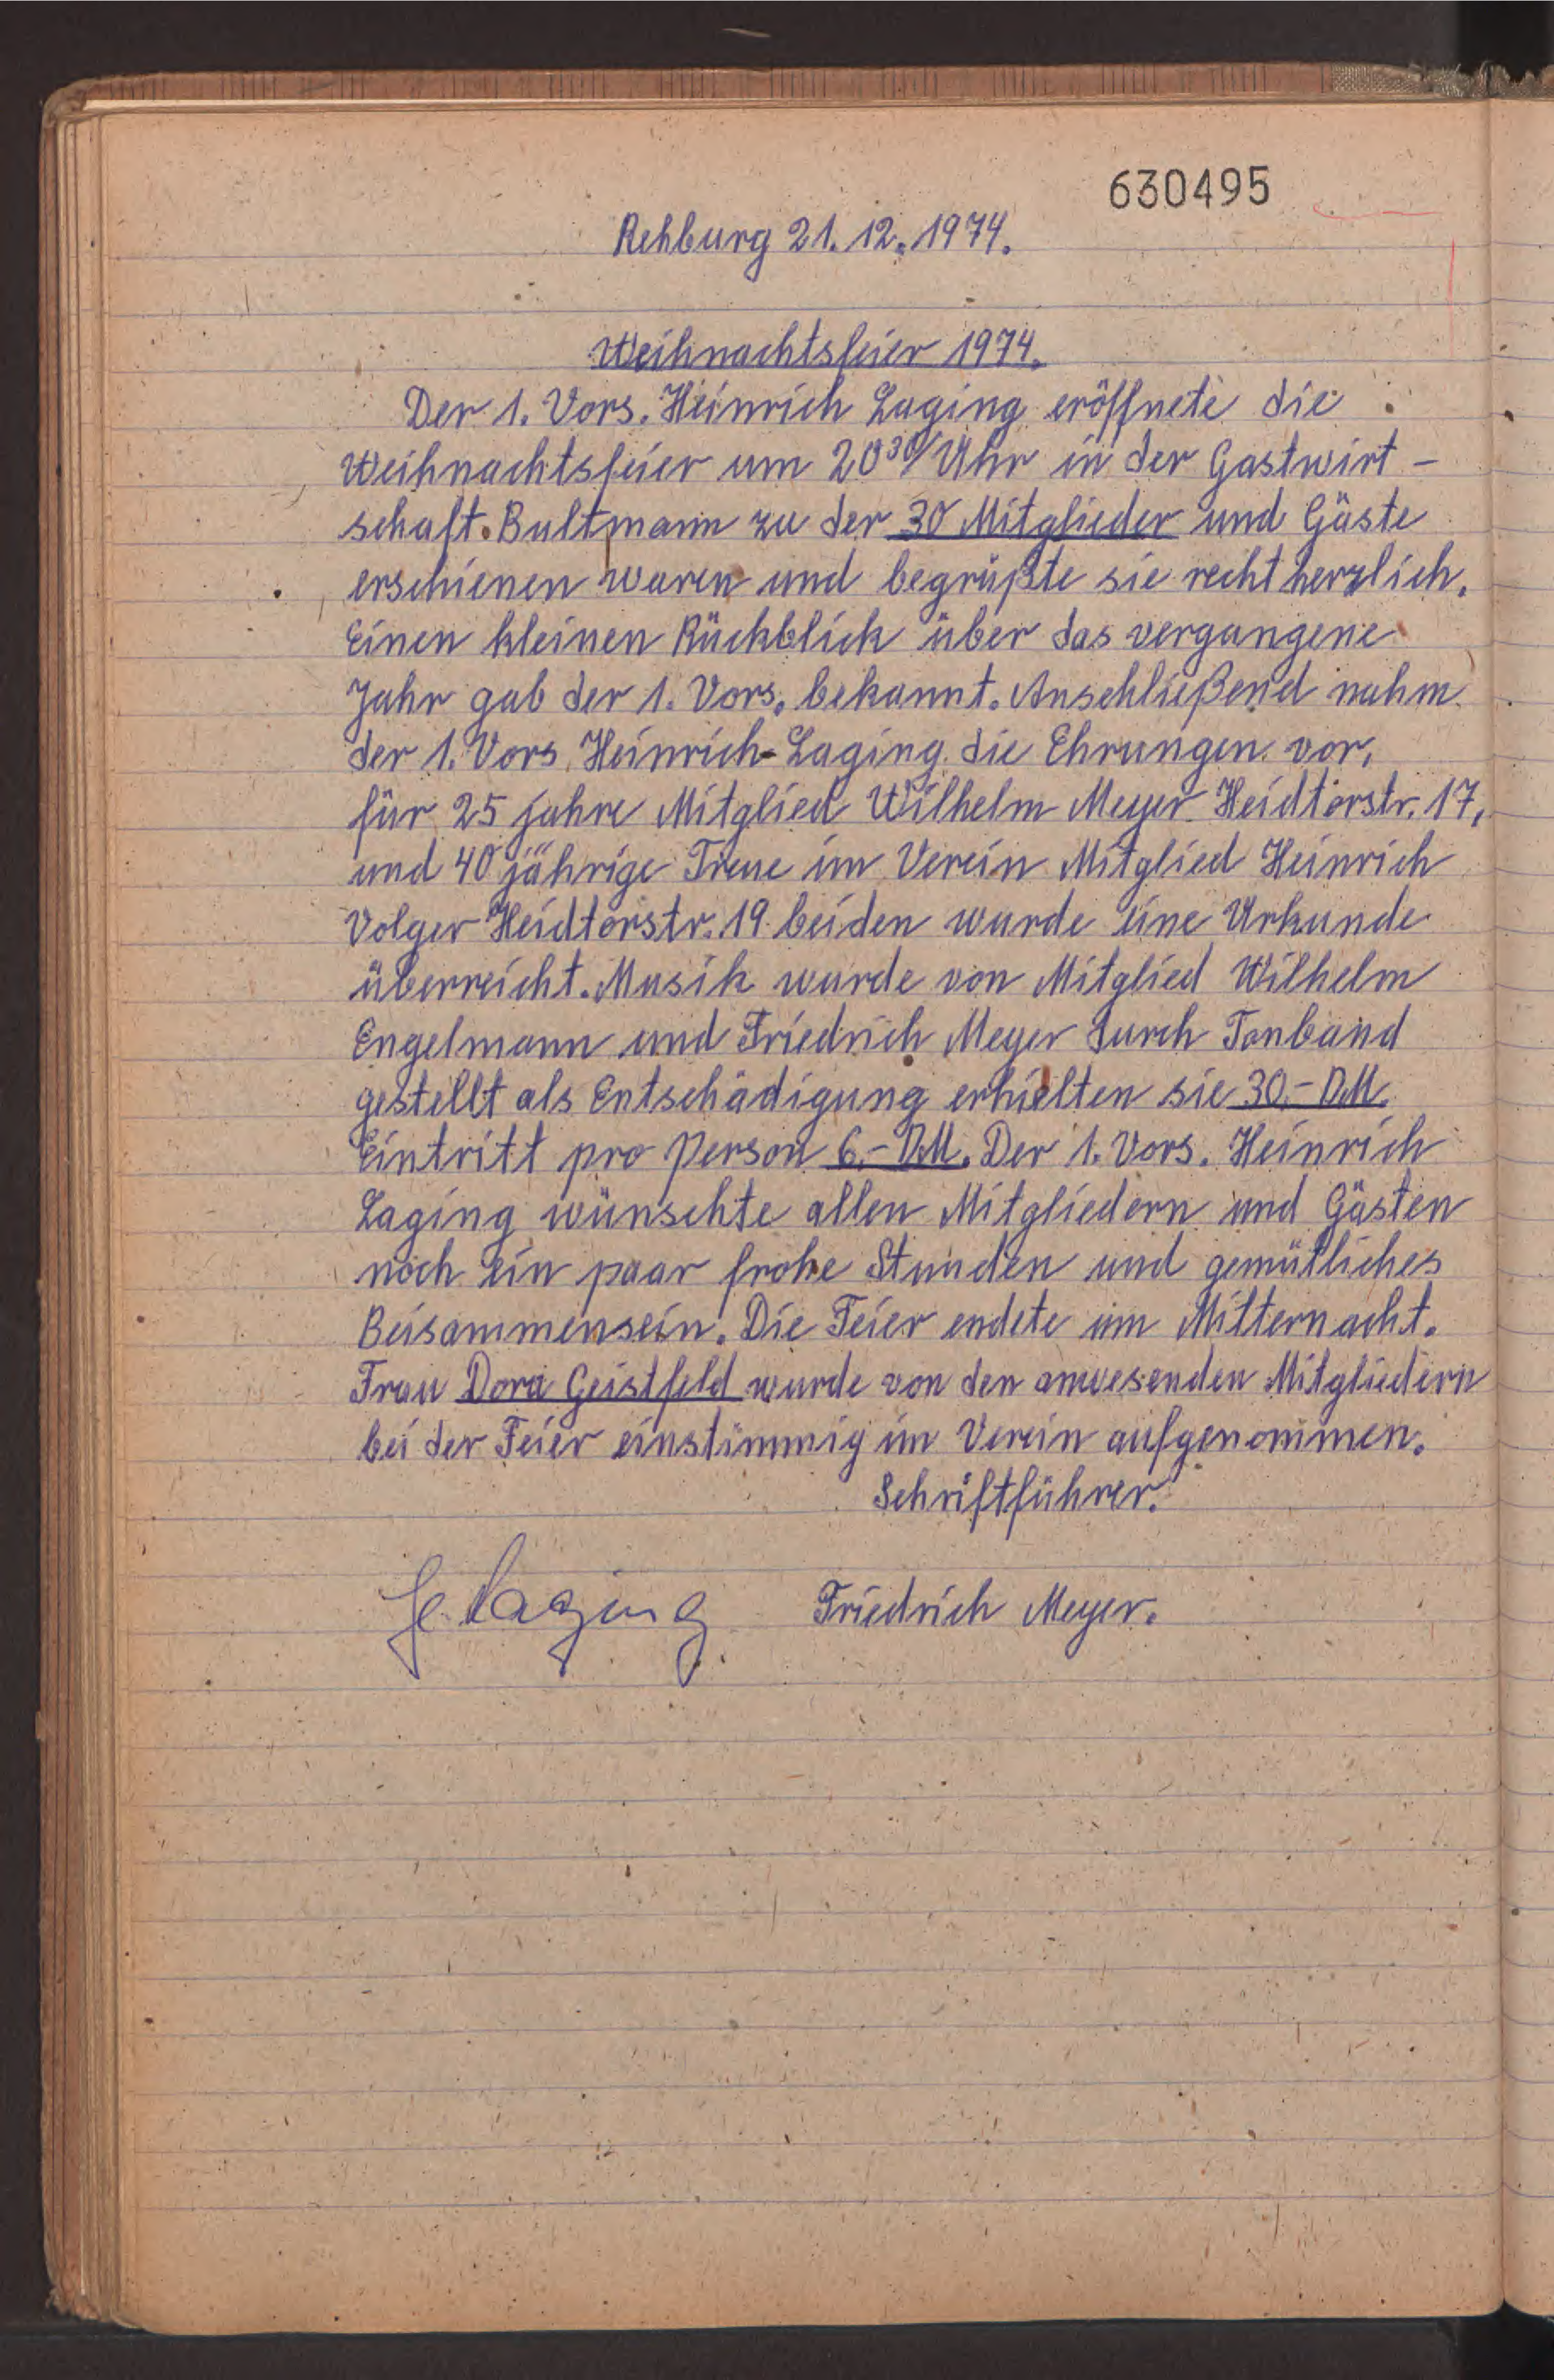 630495
Rehburg 21.12.1974.
Weihnachtsfeier 1974.
Der 1. Vors. Heinrich Laging eröffnete die
Weihnachtsfeier um 20³⁰/Uhr in der Gastwirt-
schaft. Bultmann zu der 30 Mitglieder und Gäste
erschienen waren und begrüßte sie recht herzlich.
Einen kleinen Rückblick über das vergangene
Jahr gab der 1. Vors. bekannt. Anschließend nahm
der 1. Vors. Heinrich-Laging die Ehrungen vor,
für 25 jahre Mitglied Wilhelm Meyer Heidtorstr. 17,
und 40 jährige Treue im Verein Mitglied Heinrich
Volger Heidtorstr. 19. beiden wurde eine Urkunde
überreicht. Musik wurde von Mitglied Wilhelm
Engelmann und Friedrich Meyer durch Tonband
gestellt als Entschädigung erhielten sie 30.- DM.
Eintritt pro Person 6.- DM. Der 1. Vors. Heinrich
Laging wünschte allen Mitgliedern und Gästen
noch ein paar frohe Stunden und gemütliches
Beisammensein. Die Feier endete um Mitternacht.
Frau Dora Geistfeld wurde von den anwesenden Mitgliedern
bei der Feier einstimmig im Verein aufgenommen.
Schriftführer.
H. Laging Friedrich Meyer.